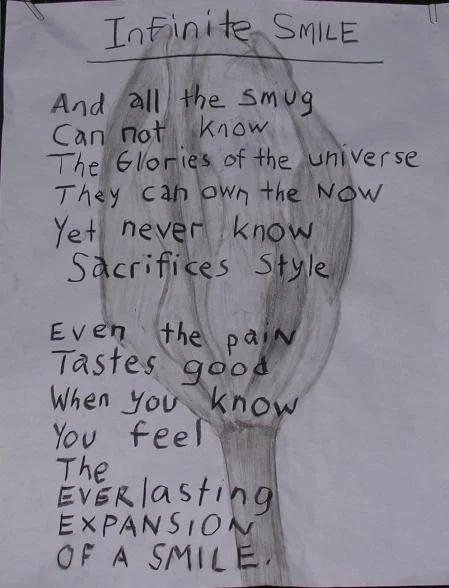 Infinite SMILE
And all the smug
Can not know
The Glories of the universe
They can own the NOW
Yet never know
Sacrifices Style
Even the paiN
Tastes good
When you know
You feel
The
EVERlasting
EXPANSION
OF A SMILE.